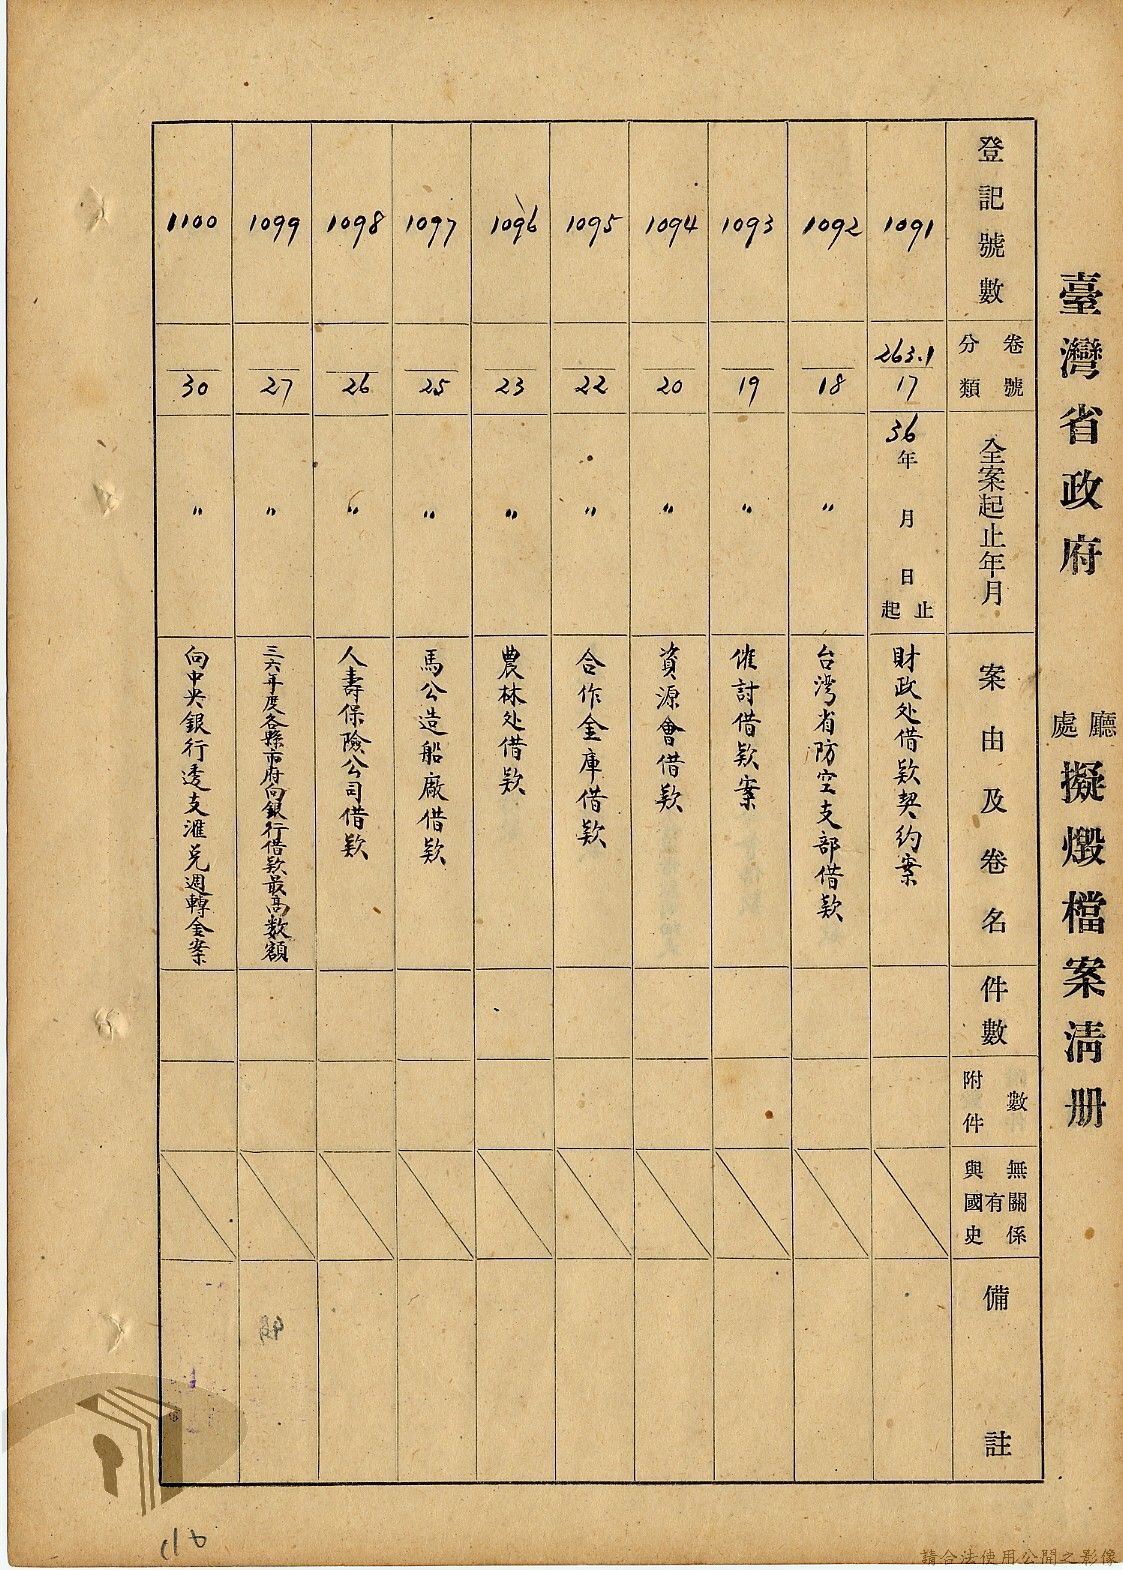 臺灣省政府 廳處 擬燬檔案清册
登記號數
卷號
分類
全案起止年月
案由及卷名
件數
附件數
與國史有無關係
備註
1091
263.1
17
36年 月 日起止
財政处借欵契約案
1092
18
〃
台湾省防空支部借欵
1093
19
〃
催討借欵案
1094
20
〃
資源會借欵
1095
22
〃
合作金庫借欵
1096
23
〃
農林处借欵
1097
25
〃
馬公造船廠借欵
1098
26
〃
人壽保險公司借欵
1099
27
〃
三六年度各縣市府向銀行借欵最高数額
1100
30
〃
向中央銀行透支滙兑週轉金案
請合法使用公開之影像